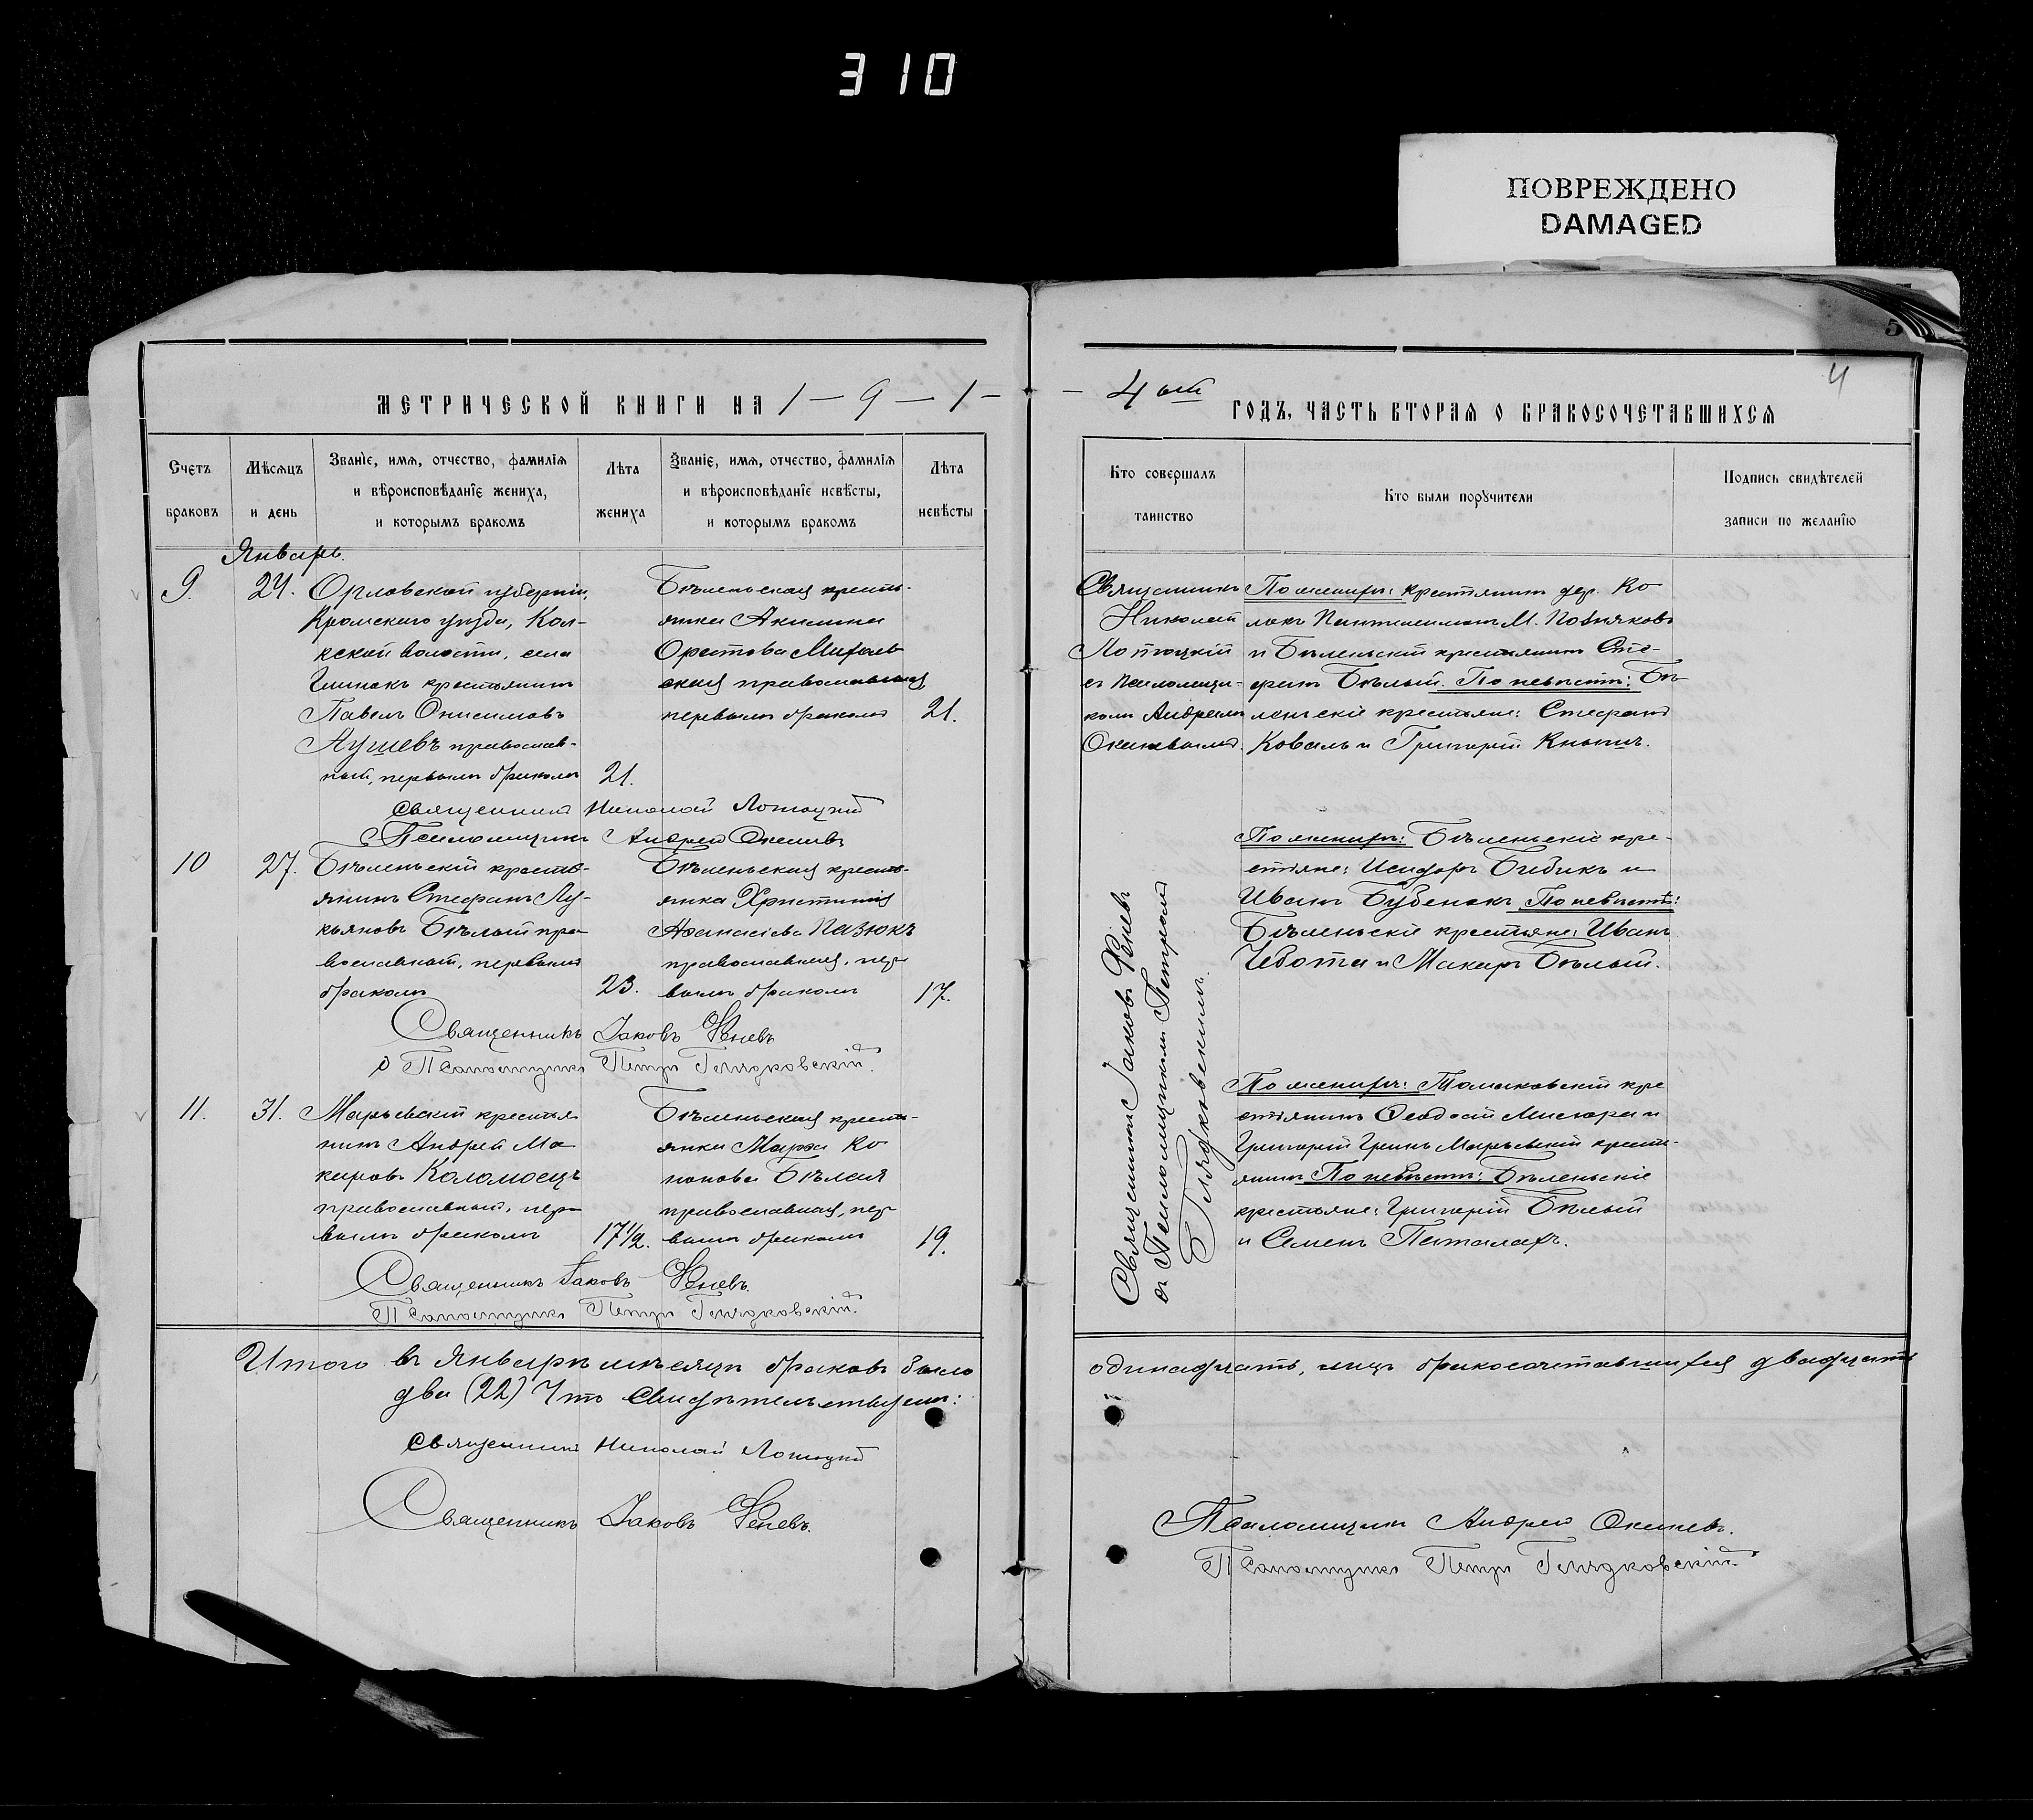 310
ПОВРЕЖДЕНО
DAMAGED
5
4
МЕТРИЧЕСКОЙ КНИГИ НА 1 — 9 — 1 —
— 4 ый ГОДЪ, ЧАСТЬ ВТОРАЯ О БРАКОСОЧЕТАВШИХСЯ
Счетъ браковъ
Мѣсяцъ и день
Званіе, имя, отчество, фамилія
и вѣроисповѣданіе жениха,
и которымъ бракомъ
Лѣта жениха
Званіе, имя, отчество, фамилія
и вѣроисповѣданіе невѣсты,
и которымъ бракомъ
Лѣта невѣсты
Кто совершалъ
таинство
Кто были поручители
Подпись свидѣтелей
записи по желанію
Январь.
9.
24.
Орловской губерніи,
Кромскаго уѣзда,
волости, села
крестьянинъ
Павелъ Онисимовъ
православ-
ный, первымъ бракомъ
21.
Бѣленьская кресть-
янка Акилина
Орестова
православная
первымъ бракомъ
21.
Священникъ
Николай
Лотоцкій
съ псаломщи-
комъ Андреемъ
По женихѣ: крестянинъ дер. Ко
и Бѣленьскій крестьянинъ Сте-
фанъ Бѣлый. По невѣстѣ: Бѣ-
леньскіе крестьяне: Стефанъ
Коваль и Григорій
Священникъ Николай Лотоцкій
Псаломщикъ Андрей
10
27.
Бѣленьскій кресть-
янинъ Стефанъ Лу-
кьяновъ Бѣлый пра-
вославный, первымъ
бракомъ
23.
Бѣленьская кресть-
янка Христина
Афанасіева Пазюкъ
православная, пер-
вымъ бракомъ
17.
По женихѣ: Бѣленьскіе кре-
стяне: Исидоръ Бибикъ и
Иванъ Бубенокъ По невѣстѣ:
Бѣленьскіе крестяне: Иванъ
Чебота и Макаръ Бѣлый.
Священникъ Іаковъ Феневъ
Псаломщикъ Петръ Глядковскій.
11.
31.
Марьевскій крестья
нинъ Андрей Ма
каровъ Коломоецъ
православный, пер-
вымъ бракомъ
17½.
Бѣленьская кресть-
янка Марфа Ко
нонова Бѣлая
православная, пер-
вымъ бракомъ
19.
Священникъ Іаковъ Феневъ
съ Псаломщикомъ Петромъ
Глядковскимъ.
По женихѣ: Томаковскій кре
стянинъ Феодосій Мисюра и
Григорій Гринь Марьевскій кресть-
янинъ По невѣстѣ: Бѣленьскіе
крестьяне: Григорій Бѣлый
и Семенъ
Священникъ Іаковъ Феневъ.
Псаломщикъ Петръ Глядковскій.
Итого въ Январѣ мѣсяцѣ браковъ было одинадцать, лицъ бракосочетавшихся двадцать
два (22) Что свидѣтельствуемъ:
Священникъ Николай Лотоцкій
Священникъ Іаковъ Феневъ.
Псаломщикъ Андрей
Псаломщикъ Петръ Глядковскій